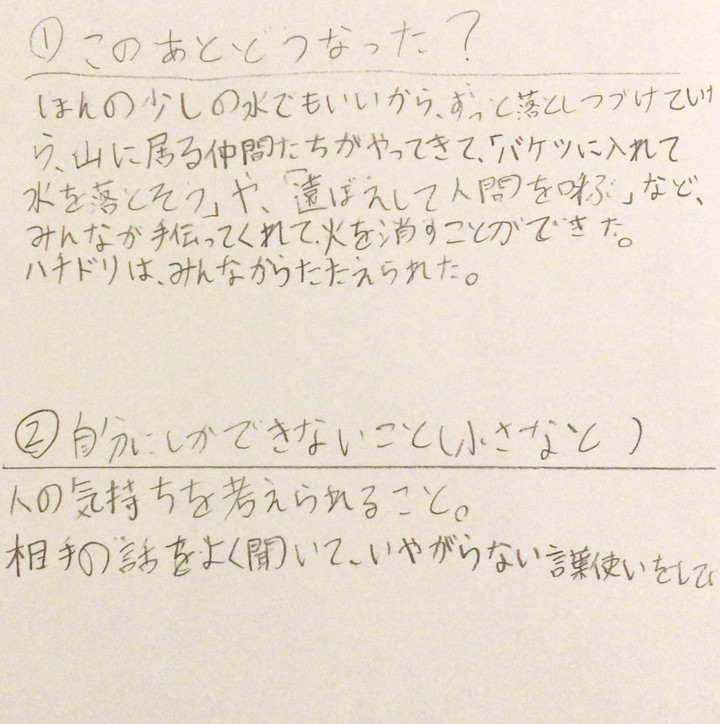 ①このあとどうなった?
ほんの少しの水でもいいから、ずっと落としつづけてい
ら、山に居る仲間たちがやってきて、「バケツに入れて
水を落とそう」や、「遠ぼえして人間を呼ぶ」など、
みんなが手伝ってくれて、火を消すことができた。
ハチドリは、みんなからたたえられた。
②自分にしかできないこと(小さなこと)
人の気持ちを考えられること。
相手の話をよく聞いて、いやがらない言葉使いをして